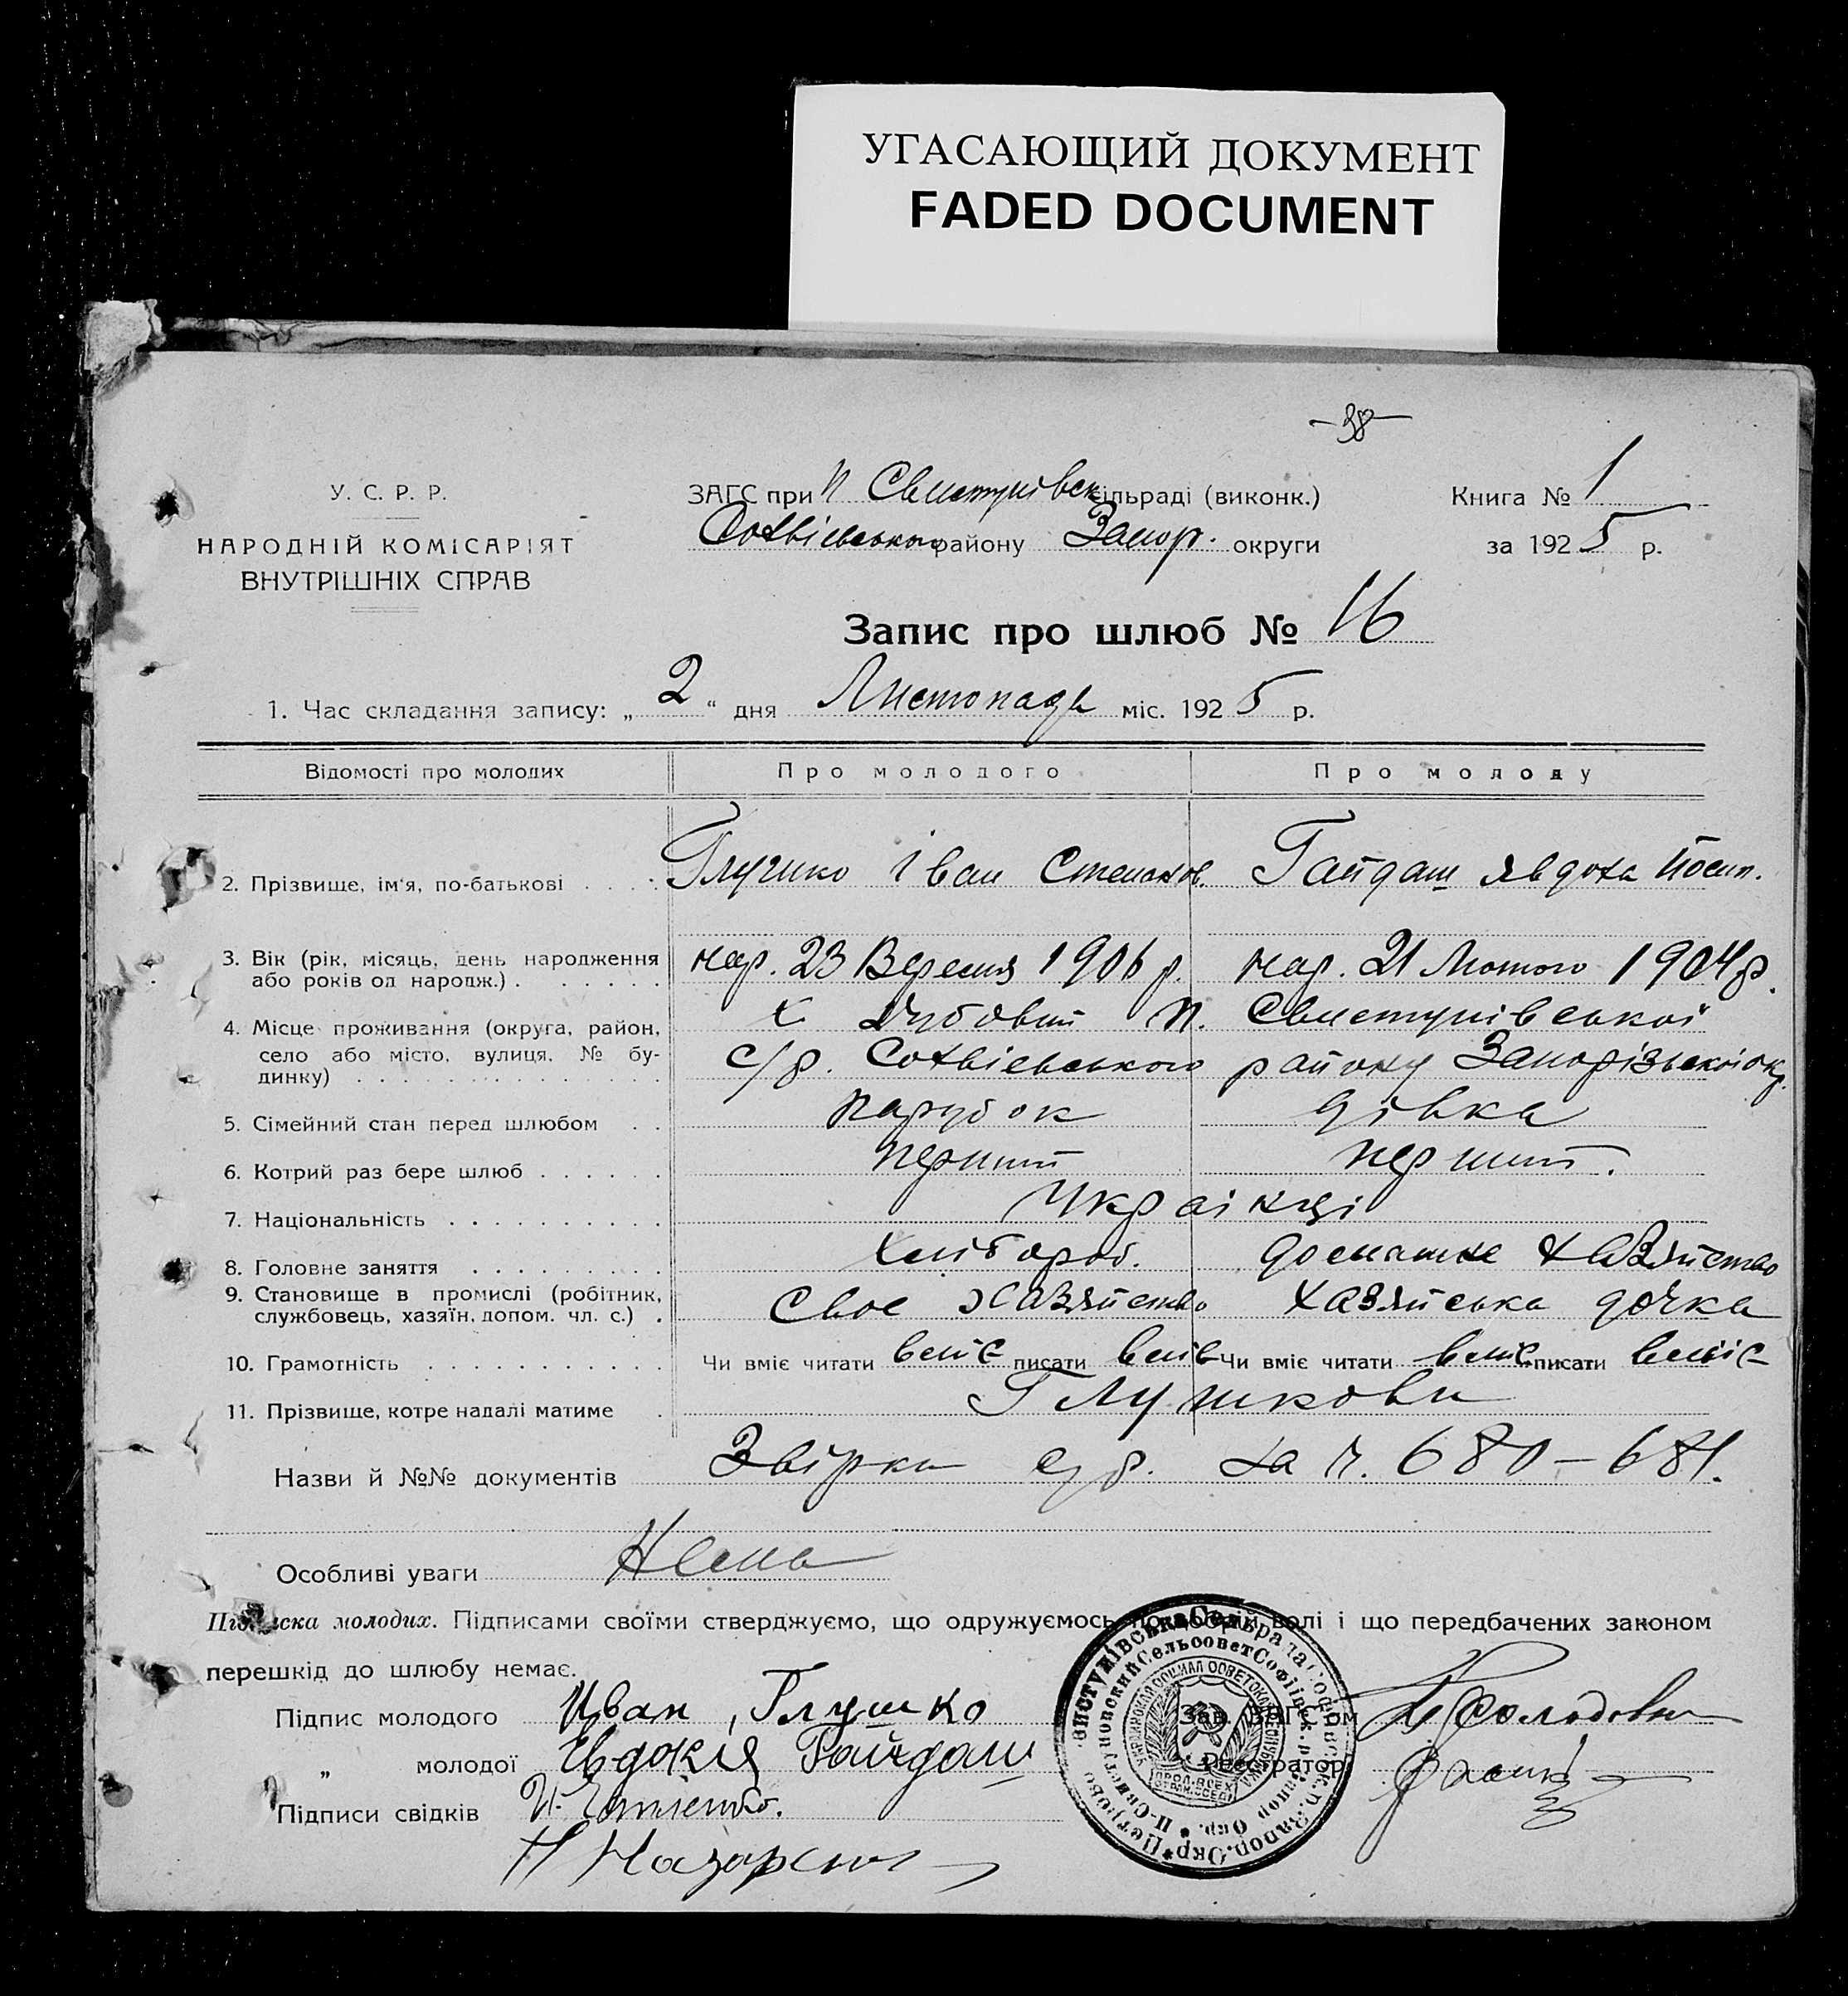 УГАСАЮЩИЙ ДОКУМЕНТ
FADED DOCUMENT
-38-
У. С. Р. Р.
НАРОДНІЙ КОМІСАРІЯТ
ВНУТРІШНІХ СПРАВ
ЗАГС при П Свистунівськ сільраді (виконк.)
Софвієвського району Запор. округи
Книга № 1
за 1925 р.
Запис про шлюб № 16
1. Час складання запису: „2“ дня Листопада міс. 1925 р.
Відомості про молодих Про молодого Про молоду
2. Прізвище, ім'я, по-батькові . . . . Глушко Іван Степанов. Гайдаш Явдоха Йосип.
3. Вік (рік, місяць, день народження нар. 23 Вересня 1906 р. нар. 21 Лютого 1904 р.
або років од народж.) . . . . . . .
4. Місце проживання (округа, район, х Дубовий П. Свистунівської
село або місто, вулиця, № бу- с/р. Софвієвського району Запорізької окр.
динку) . . . . . . . . . . . . . .
5. Сімейний стан перед шлюбом . . парубок дівка
6. Котрий раз бере шлюб . . . . . . перший перший.
7. Національність . . . . . . . . . . Українці
8. Головне заняття . . . . . . . . . хлібороб. домашнє хазяйство
9. Становище в промислі (робітник, Своє хазяйство хазяйська дочка
службовець, хазяїн, допом. чл. с.) .
10. Грамотність . . . . . . . . . . . Чи вміє читати вміє писати вміє Чи вміє читати вміє писати вміє
11. Прізвище, котре надалі матиме . Глушкови
Назви й №№ документів Звірки с/р. за ч. 680-681.
Особливі уваги Нема
Підписка молодих. Підписами своїми стверджуємо, що одружуємось по добрій волі і що передбачених законом
перешкід до шлюбу немає.
Підпис молодого Иван Глушко
Зав. ЗАГС'ом
„ молодої Евдокія Гайдаш
Реєстратор
Підписи свідків
Н Назаренко